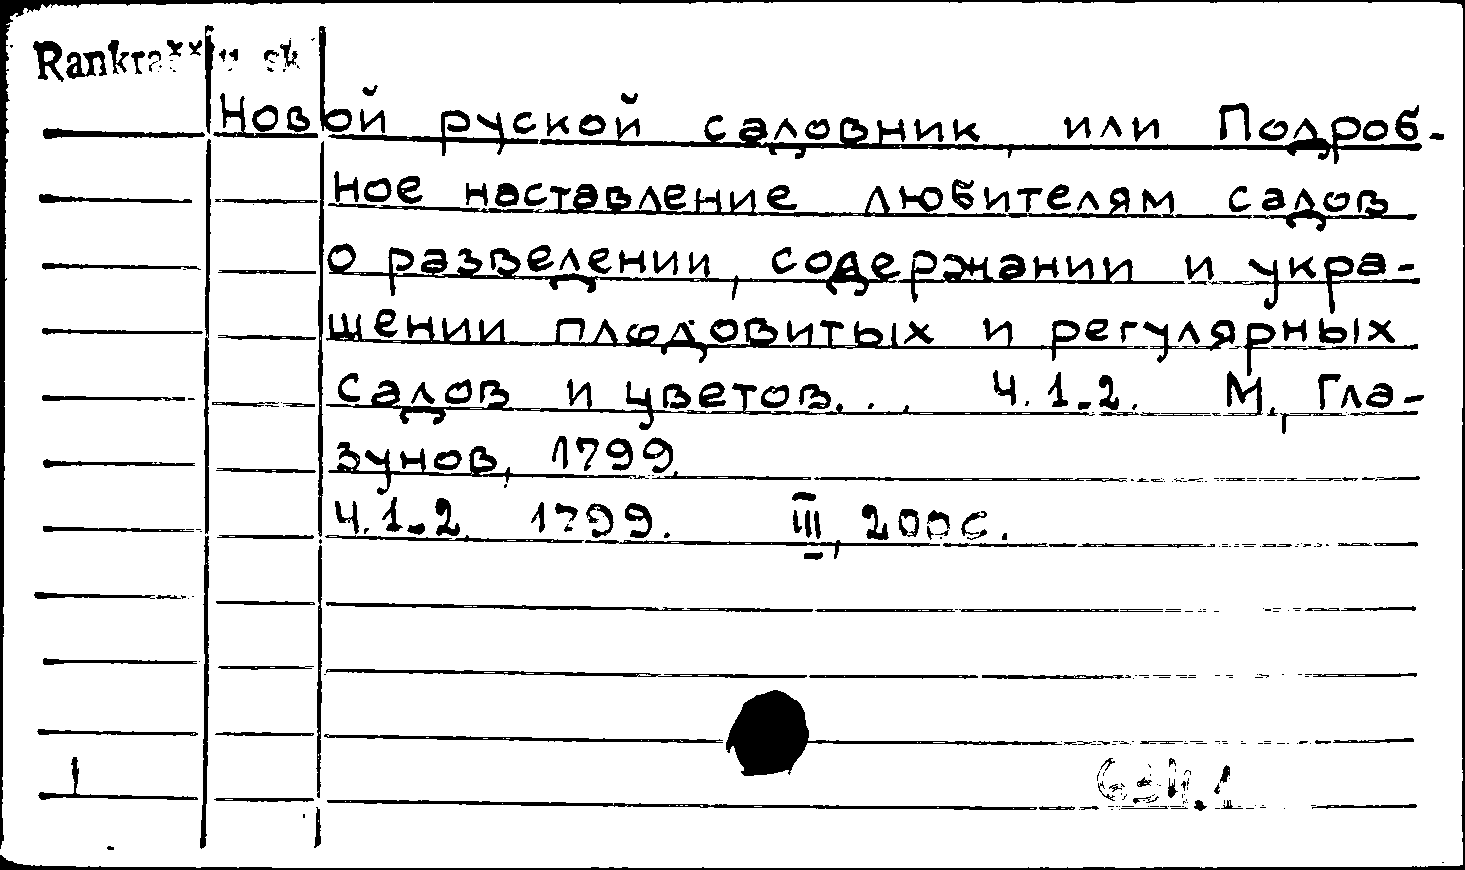 Rankraščių sk
Новой руской садовник, или Подроб-
ное наставление любителям садов
о разведении, содержании и укра-
шении плодовитых и регулярных
садов и цветов... Ч. 1-2. М., Гла-
зунов, 1799.
Ч. 1-2. 1799. III, 200с.
634.1